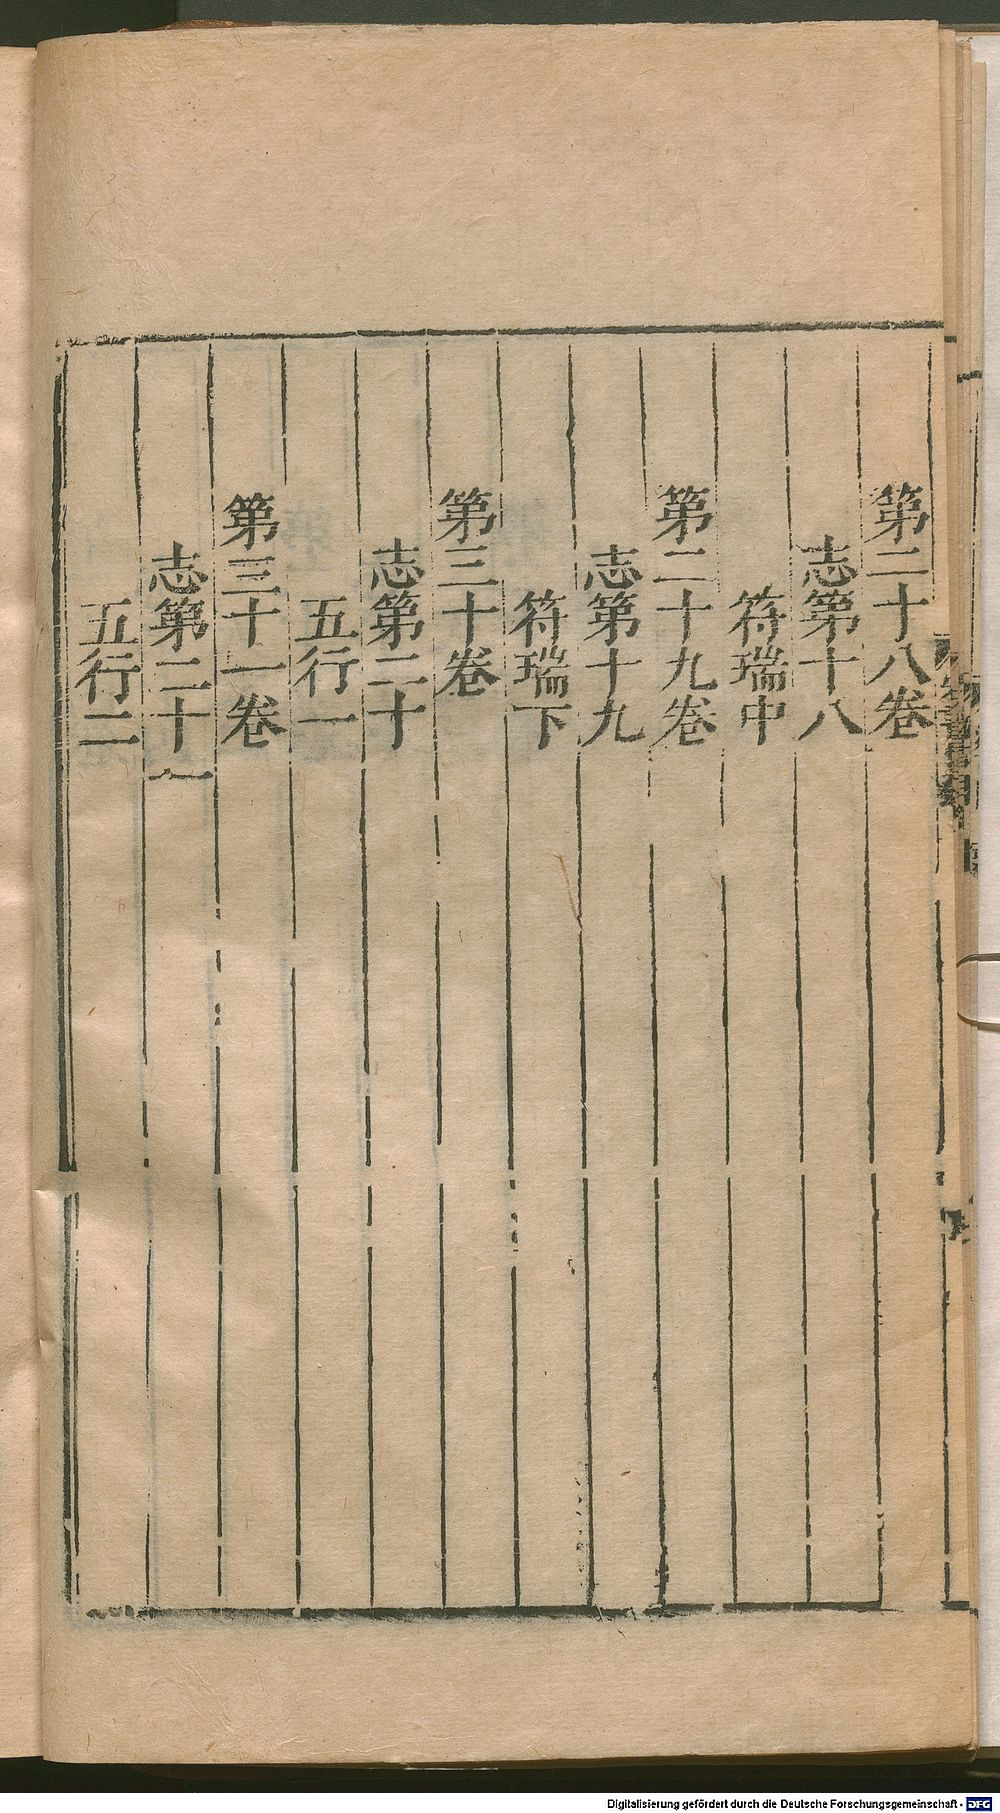 第二十八卷
志第十八
符瑞中
第二十九卷
志第十九
符瑞下
第三十卷
志第二十
五行一
第三十一卷
志第二十一
五行二
Digitalisierung gefördert durch die Deutsche Forschungsgemeinschaft - DFG